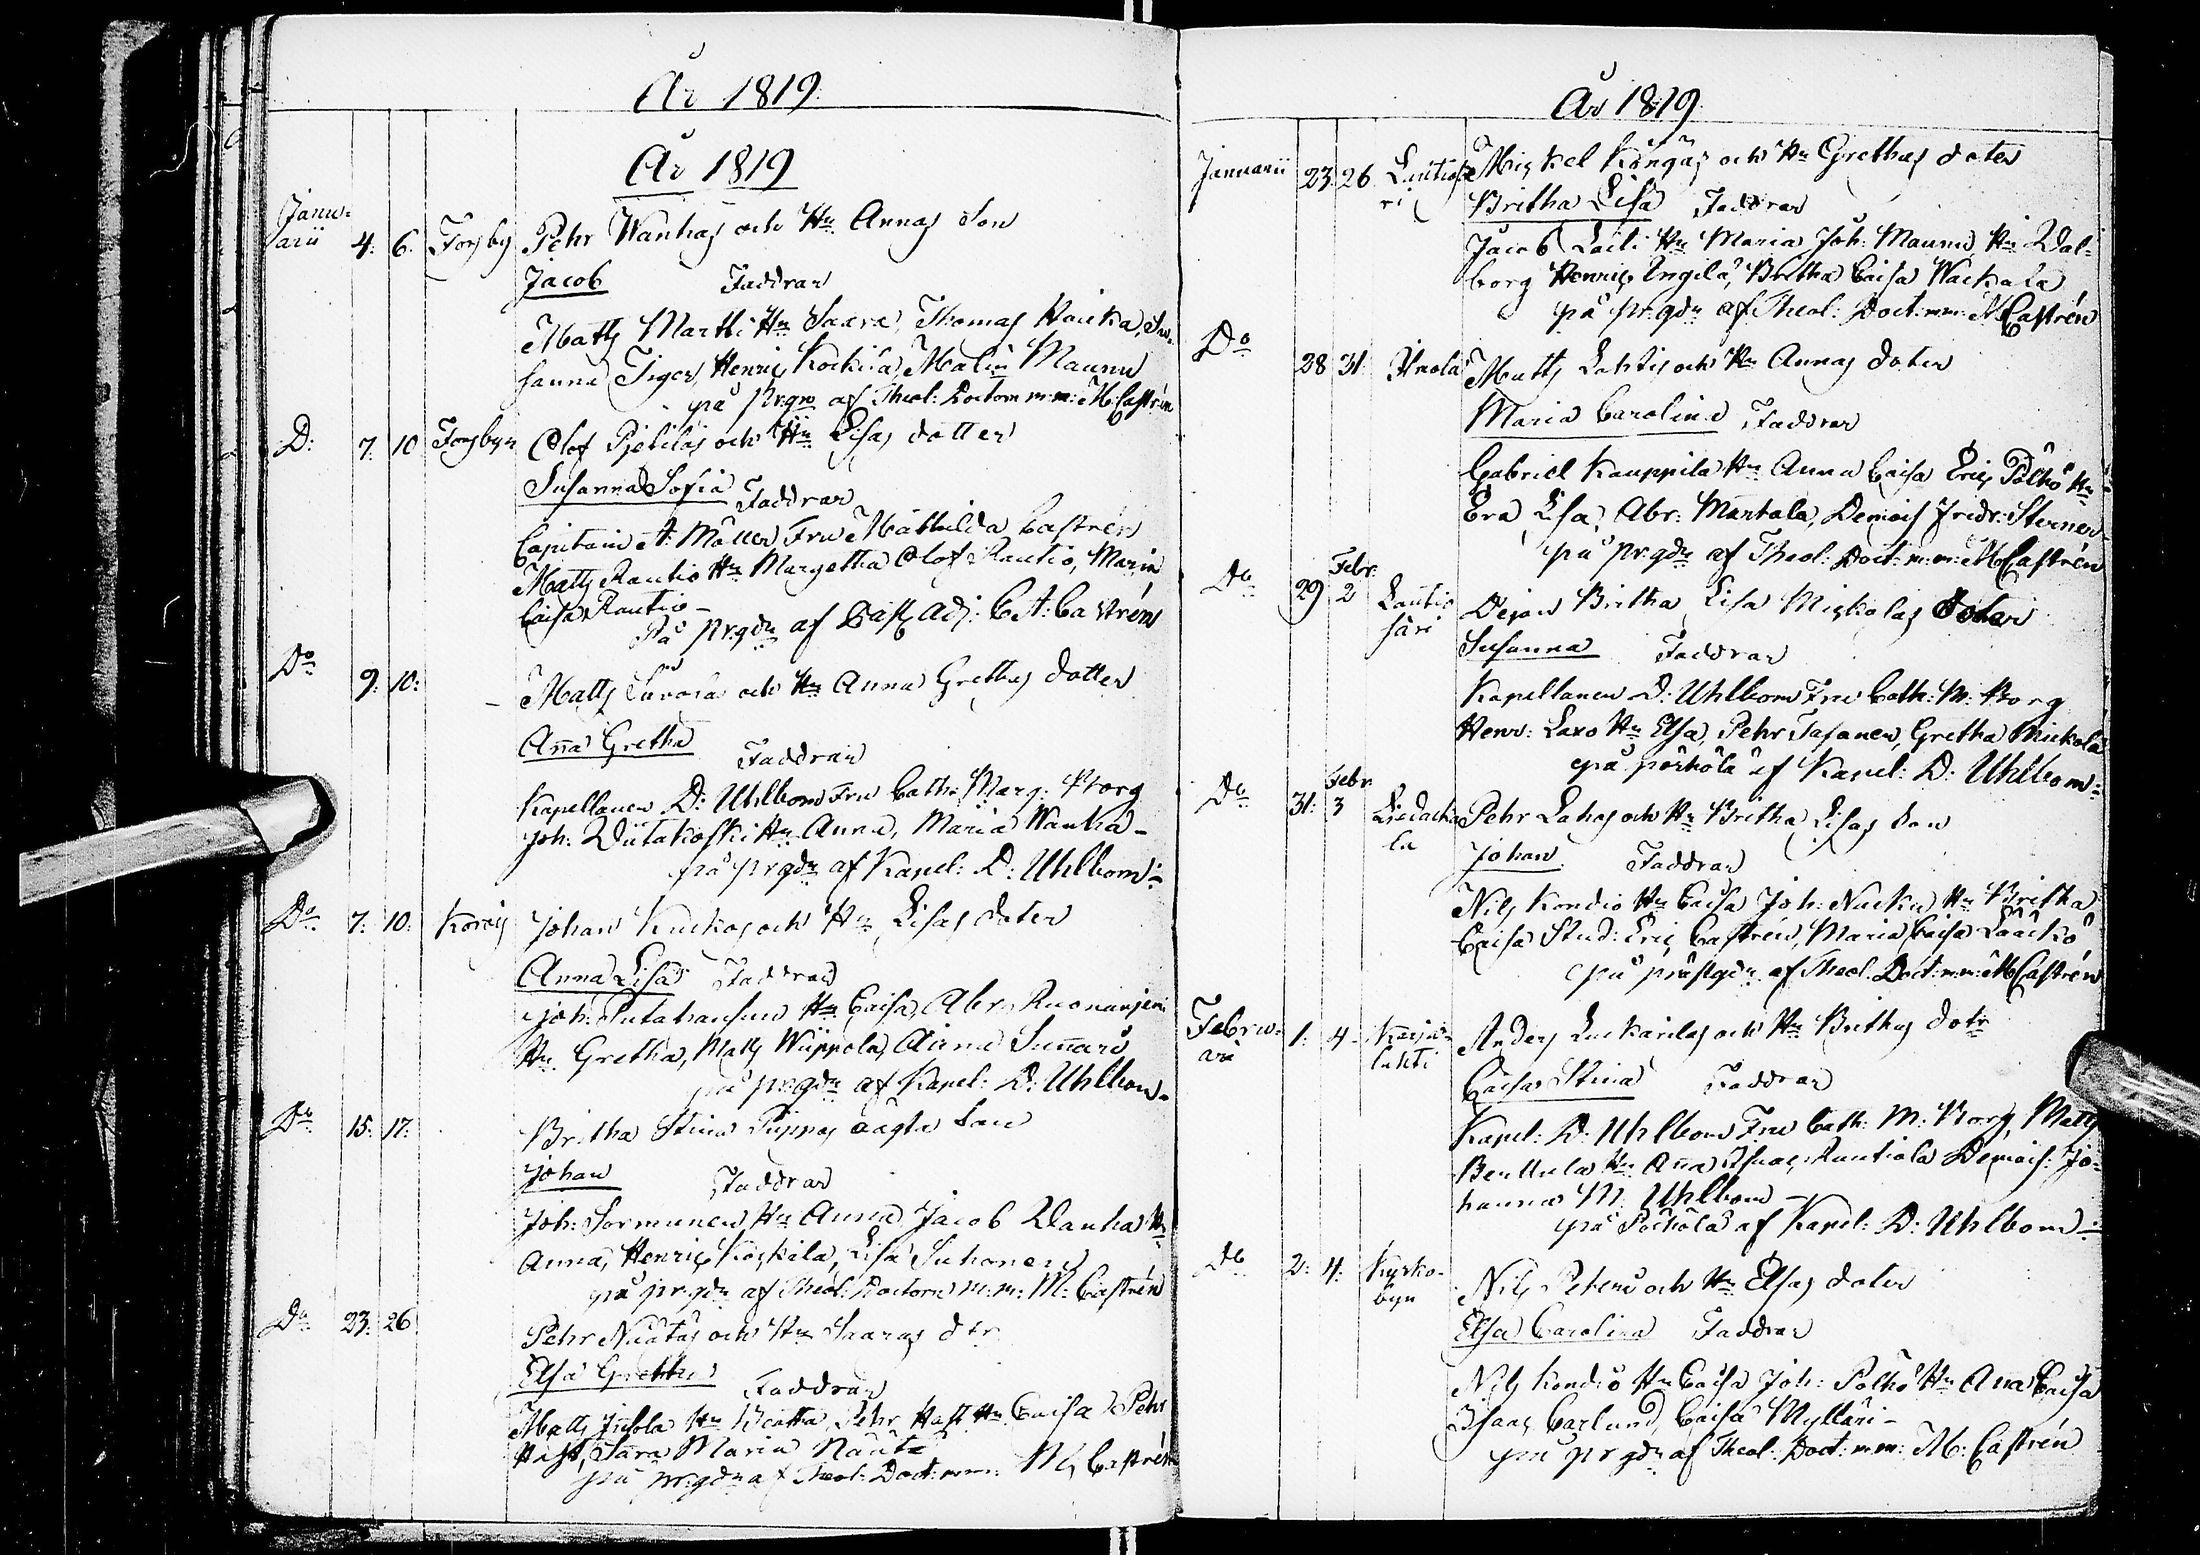 År 1819.
År 1819
Janu-
arii 4. 6. Forsby Pehr Wanhas och Hu Annas Son
Jacob Faddrar
Matts Martti Hu Saara, Thomas Hauka, Su-
sanna Tiger, Henric Kockila, Malin Maunu
på pr:gdn af Theol: Doctorn m:m: M. Castrén
D: 7. 10 Forsbyn Olof Pjetiläs och Hu Lisas dotter
Susanna Sofia Faddrar
Capitain A: Möller Fru Mathilda Castrén
Matts Rautio Hu Margetha Olof Rautio, Maria
Caisa Rautio –
På pr.gdn af Past. Adj: C. A: Castrén
Do 9. 10. Matts Suvola och Hu Anna Grethas dotter
Anna Gretha Faddrar
Kapellanen D: Uhlbom Fru Cath: Marg: Borg
Joh: Wiitakoski Hu Anna, Maria Wanha –
på prgdn af Kapel: D: Uhlbom –
Do 7. 10. Korois Johan Kuckos och Hu Lisas doter
Anna Lisa Faddrar
Joh: Hu Caisa, Abr:
Hu Gretha, Matts Wiippola,
på pr:gdn af Kapel: D: Uhlbom –
Do 15. 17. Britha Stina Pippas oägta Son
Johan Faddrar
Joh: Sormunen Hu Anna Jacob Wanha Hu
Anna, Henric Koskela, Lisa Suhonen
på pr:gdn af Theol: Doctorn m:m: M: Castrén
Do 23. 26 Pehr och Hu Saaras dtr
Elsa Gretha Faddrar
Matts Hu Beatha, Pehr Hast Hu Caisa Pehr
Hast, Sara Maria
på pr:gdn af Theol: Doct: m:m: M, Castrén
År 1819.
Januarii 23. 26 Lautiosa
ri Mickel Köngäs och Hu Grethas doter
Britha Lisa Faddrar
Jacob Hu Maria Joh: Maunu Hu Wal-
borg Henric Ängilä, Britha Caisa Wackala
på pr:gdn af Theol: Doct: m:m: M Castrén
Do 28 31 Matts Lahtis och Hu Annas doter
Maria Carolina Faddrar
Gabriel Kauppila Hu Anna Caisa Eric Pölhö Hu
Eva Lisa, Abr: Martala, Demois Fredr: Sterner
på pr.gdn af Theol: Doct: m:m: M Castrén
Do 29 Febr.
2 Lautio
sari Dejan Britha Lisa Mickolas doter
Susanna Faddrar
Kapellanen D: Uhlbom Fru Cath: M: Borg
Henr: Laxo Hu Elsa, Pehr Tasanen, Gretha Mickola
på pörhölä af Kapel: D: Uhlbom –
Do 31. Febr
3 Liedacka
la Pehr Lahes och Hu Britha Lisas Son
Johan Faddrar
Nils Kondio Hu Caisa Joh: Hu Britha
Caisa Stud: Eric Castrén, Maria Caisa Lääckö
på prästgdn af Theol: Doct: m:m: M Castrén
Febru-
arii 1. 4. Karja-
lahti Anders Luckarilas och Hu Brithas dotr
Caisa Stina Faddrar
Kapel: D: Uhlbom Fru Cath: M: Borg, Matts
Hu Anna Isaac Rautiola Demois: Jo-
hanna M: Uhlbom –
på Pörhölä af Kapel: D: Uhlbom –
Do 2. 4. Kyrko-
byn Nils Peteri och Hu Elsas doter
Elsa Carolina Faddrar
Nils Kondio Hu Caisa Joh: Pölhö Hu Anna Caisa
Isaac Carlund, Caisa Mylläri –
på pr gdn af Theol: Doct: m:m: M: Castrén